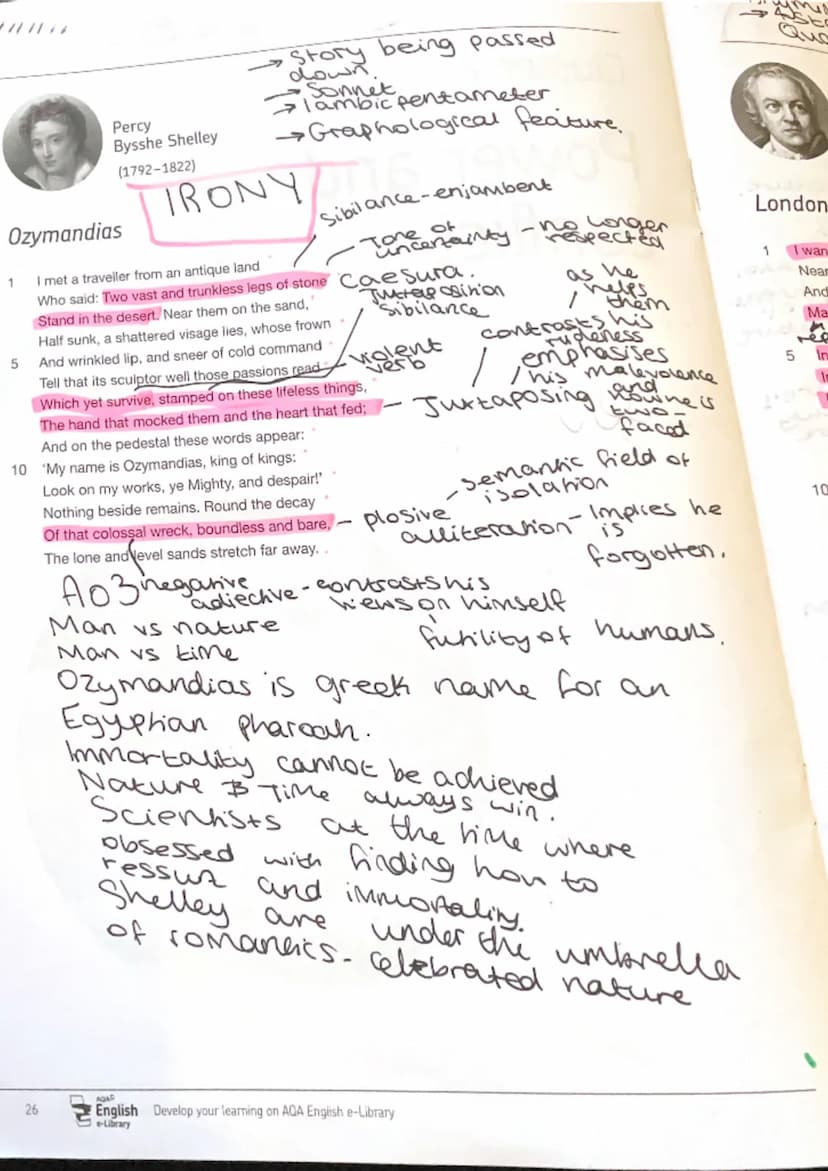 → Story being passed
down.
→ Sonnet
→ Iambic pentameter
→ Graphological feature.
Percy
Bysshe Shelley
(1792–1822)
IRONY
Sibilance - enjambent
Ozymandias
Tone of
uncertainty - no longer
respected
1 I met a traveller from an antique land
Who said: Two vast and trunkless legs of stone
Stand in the desert. Near them on the sand,
Half sunk, a shattered visage lies, whose frown
5 And wrinkled lip, and sneer of cold command
Tell that its sculptor well those passions read
Which yet survive, stamped on these lifeless things,
The hand that mocked them and the heart that fed;
And on the pedestal these words appear:
10 'My name is Ozymandias, king of kings:
Look on my works, ye Mighty, and despair!'
Nothing beside remains. Round the decay
Of that colossal wreck, boundless and bare,
The lone and level sands stretch far away.
Caesura.
Juxtaposition
Sibilance
as he
helps
them
violent
verb
contrasts his
rudeness
emphasises
his malevolence
and
how he is
two-
faced
Juxtaposing
semantic field of
isolation
- plosive
alliteration - Implies he
is
forgotten.
Ao3
negative
adjective - contrasts his
views on himself
Man vs nature
futility of humans.
Man vs time
Ozymandias is greek name for an
Egyptian pharoah.
Immortality cannot be achieved
Nature & Time always win.
Scientists at the time where
obsessed with finding how to
ressuz and immortality.
Shelley are under the umbrella
of romantics - celebrated nature
London
1 I wan
Near
And
Ma
5 In
10
26
AQA
English
e-Library
Develop your learning on AQA English e-Library